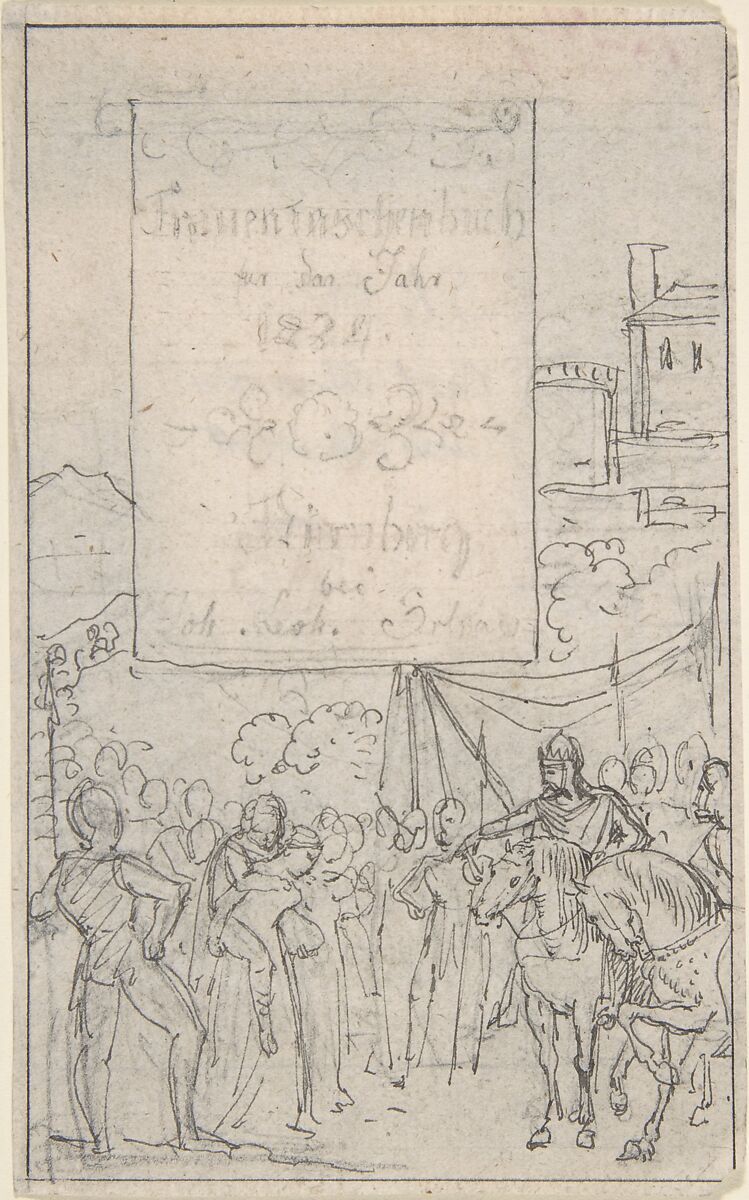 Frauentaschenbuch
für das Jahr
Nürnberg
bei
Joh. Leonh.